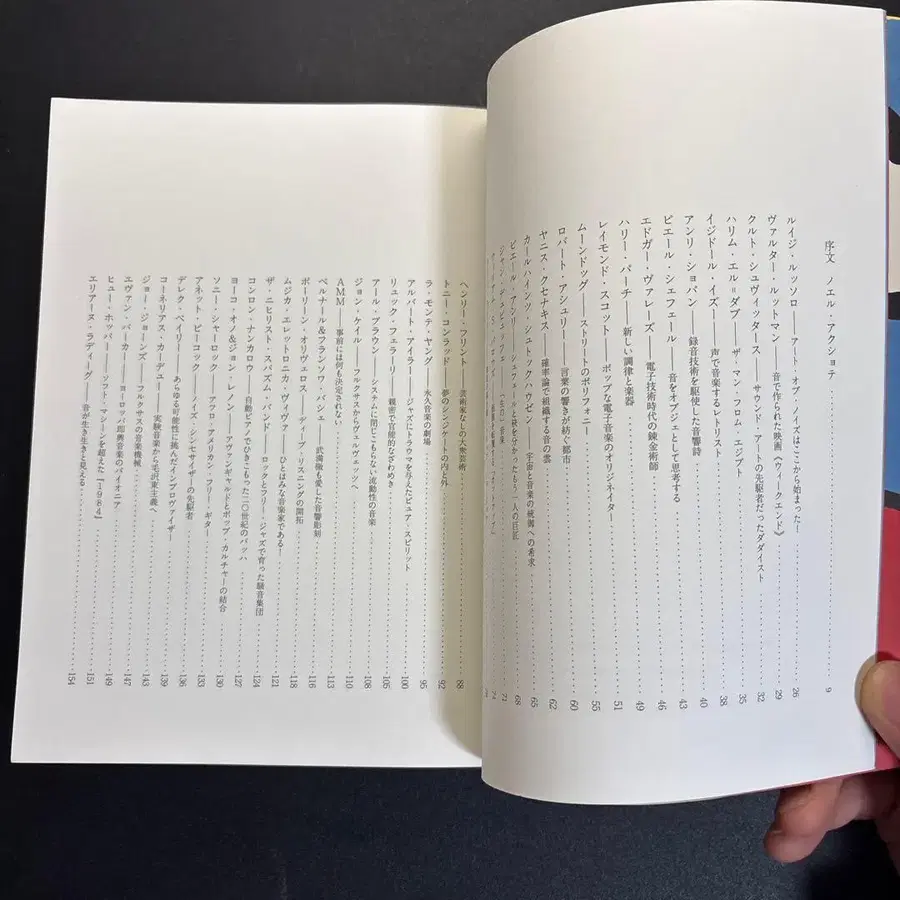 序文 ノエル・アクショテ……9
ルイジ・ルッソロ――アート・オブ・ノイズはここから始まった!……26
ヴァルター・ルットマン――音で作られた映画《ウィークエンド》……29
クルト・シュヴィッタース――サウンド・アートの先駆者だったダダイスト……32
ハリム・エル=ダブ――ザ・マン・フロム・エジプト……35
イジドール・イズ――声で音楽するレトリスト……38
アンリ・ショパン――録音技術を駆使した音響詩……40
ピエール・シェフェール――音をオブジェとして思考する……43
エドガー・ヴァレーズ――電子技術時代の錬金術師……46
ハリー・パーチ――新しい調律と楽器……49
レイモンド・スコット――ポップな電子音楽のオリジネイター……51
ムーンドッグ――ストリートのポリフォニー……55
ロバート・アシュリー――言葉の響きが紡ぐ都市……60
ヤニス・クセナキス――確率論で組織する音の雲……62
カールハインツ・シュトックハウゼン――宇宙と音楽の統御への希求……65
ピエール・アンリ――シェフェールと袂を分かったもう一人の巨匠……68
ジャン・デュビュッフェ――「生の」音楽……71
74
ヘンリー・フリント――芸術家なしの大衆芸術……88
トニー・コンラッド――夢のシンジケートの内と外……92
ラ・モンテ・ヤング――永久音楽の劇場……95
アルバート・アイラー――ジャズにトラウマを与えたピュア・スピリット……100
リュック・フェラーリ――親密で官能的なざわめき……105
アール・ブラウン――システムに閉じこもらない流動性の音楽……108
ジョン・ケイル――フルクサスからヴェルヴェッツへ……110
AMM――事前には何も決定されない……113
ベルナール&フランソワ・バシェ――武満徹も愛した音響彫刻……116
ポーリーン・オリヴェロス――ディープ・リスニングの開拓……118
ムジカ・エレットロニカ・ヴィヴァ――ひとはみな音楽家である!……121
ザ・ニヒリスト・スパズム・バンド――ロックとフリー・ジャズで育った騒音集団……124
コンロン・ナンカロウ――自動ピアノでひきこもった二〇世紀のバッハ……127
ヨーコ・オノ&ジョン・レノン――アヴァンギャルドとポップ・カルチャーの結合……130
ソニー・シャーロック――アフロ・アメリカン・フリー・ギター……133
アネット・ピーコック――ノイズ・シンセサイザーの先駆者……136
デレク・ベイリー――あらゆる可能性に挑んだインプロヴァイザー……139
コーネリアス・カーデュー――実験音楽から毛沢東主義へ……143
ジョー・ジョーンズ――フルクサスの音楽機械……147
エヴァン・パーカー――ヨーロッパ即興音楽のパイオニア……149
ヒュー・ホッパー――ソフト・マシーンを超えた『1984』……151
エリアーヌ・ラディーグ――音が生き生きと見える……154